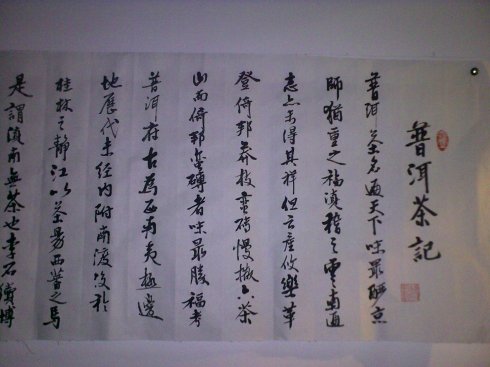 普洱茶記
普洱茶名遍天下味最釅京
師猶重之福滇稽之雲南通
志亦未得其祥但云產攸樂革
登倚邦莽枝蠻磚慢撒六茶
山而倚邦蠻磚者味最勝福考
普洱府古為西南夷極邊
地歷代未經內附南渡後於
桂林之靜江以茶易西普之馬
是謂滇南無茶也李石續博